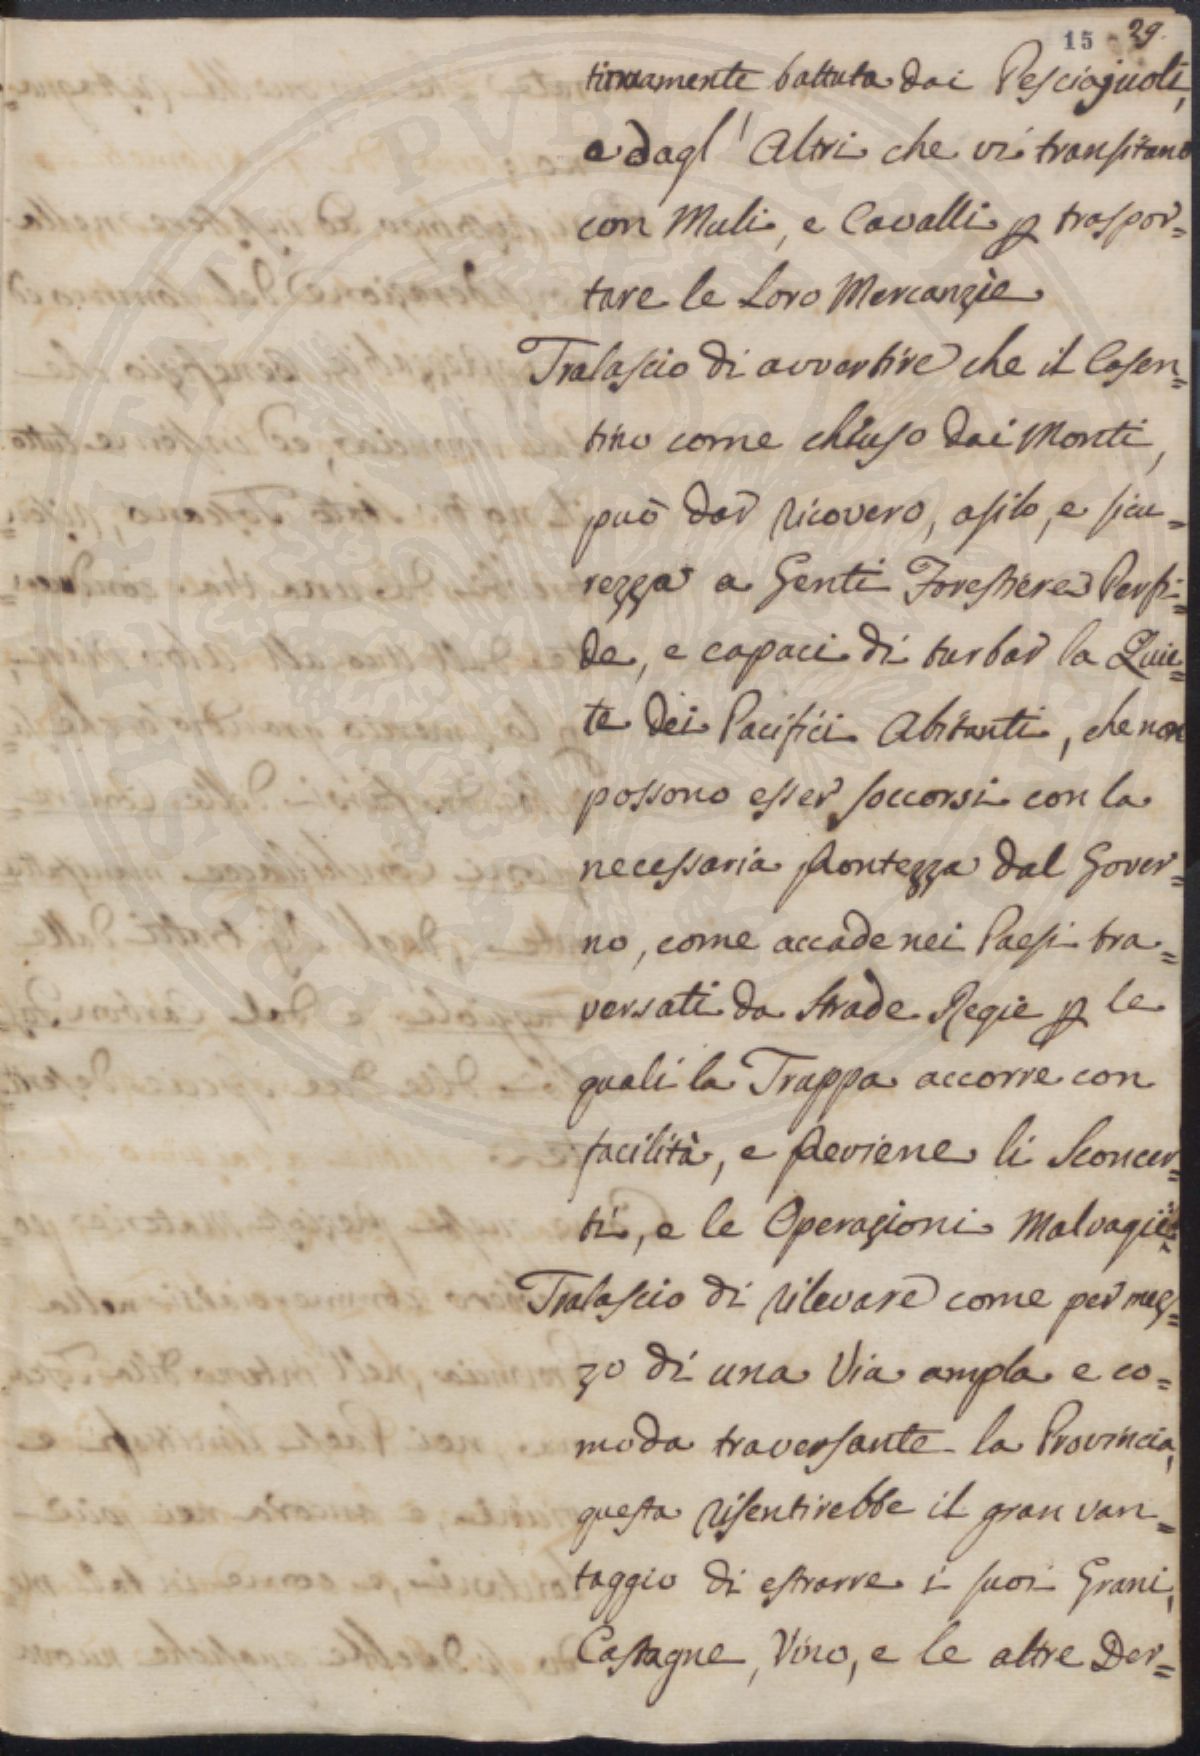 15 29.
tinuamente battuta dai Pesciajuoli,
e dagl' Altri che vi transitano
con Muli, e Cavalli p traspor=
tare le Loro Mercanzie
Tralascio di avvertire che il Casen=
tino come chiuso dai Monti,
può dar ricovero, asilo, e sicu=
rezza a Genti Forestiere Perfi=
de, e capaci di turbar la Quie=
te dei Pacifici Abitanti, che non
possono esser soccorsi con la
necessaria prontezza dal Gover=
no, come accade nei Paesi tra=
versati da Strade Regie p le
quali la Truppa accorre con
facilità, e previene li Sconcer=
ti, e le Operazioni Malvagie
Tralascio di rilevare come per mez=
zo di una Via ampla e co=
moda traversante la Provincia,
questa risentirebbe il gran van=
taggio di estrarre i suoi Grani,
Castagne, Vino, e le altre Der=